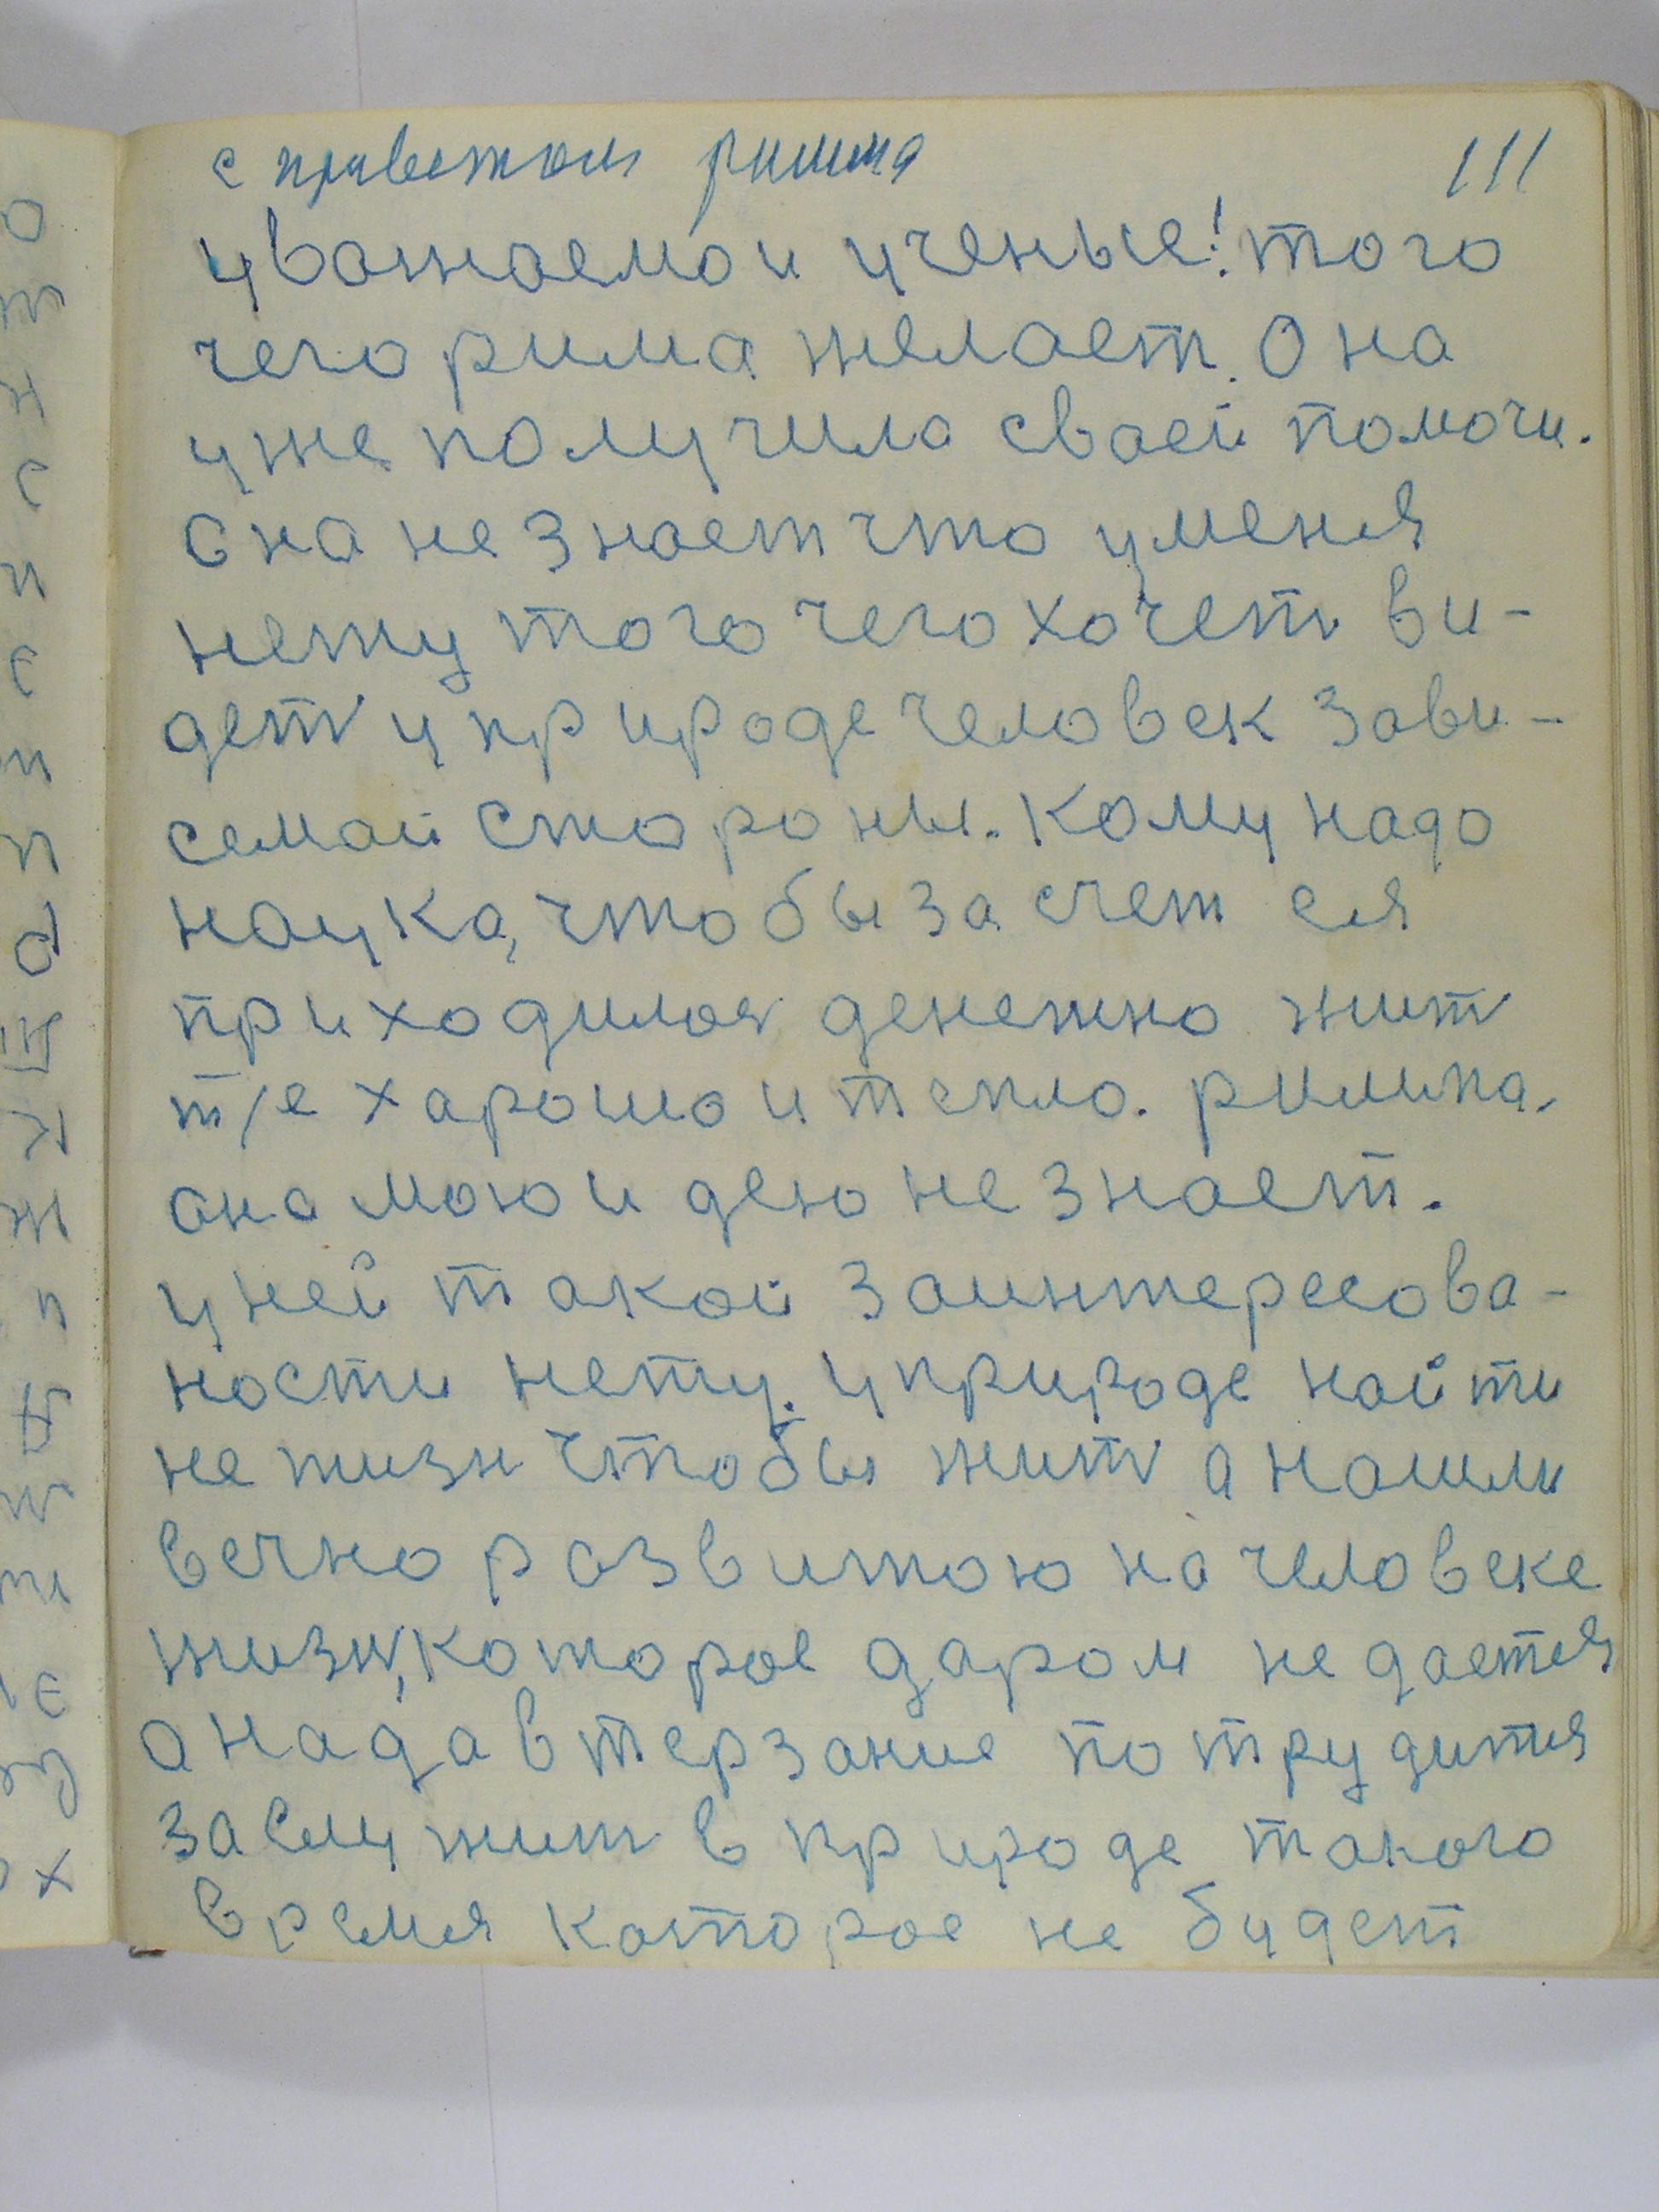 с приветом римма 111
уважаемои ученые! того
чего рима желает. Она
уже получила своей помочи.
Она не знает что у меня
нету того чего хочеть ви-
деть у природе человек зави-
семай стороны. Кому надо
наука, чтобы за счет ея
приходилоя денежно жить
т/е харошо и тепло. римма.
она мою идею не знает.
у ней такой заинтересова-
ности нету. у природе найти
не жизн чтобы жить а нашли
вечно развитою на человеке
жизнь, которое даром не дается
а нада в терзание потрудится
заслужит в природе такого
время которое не будет